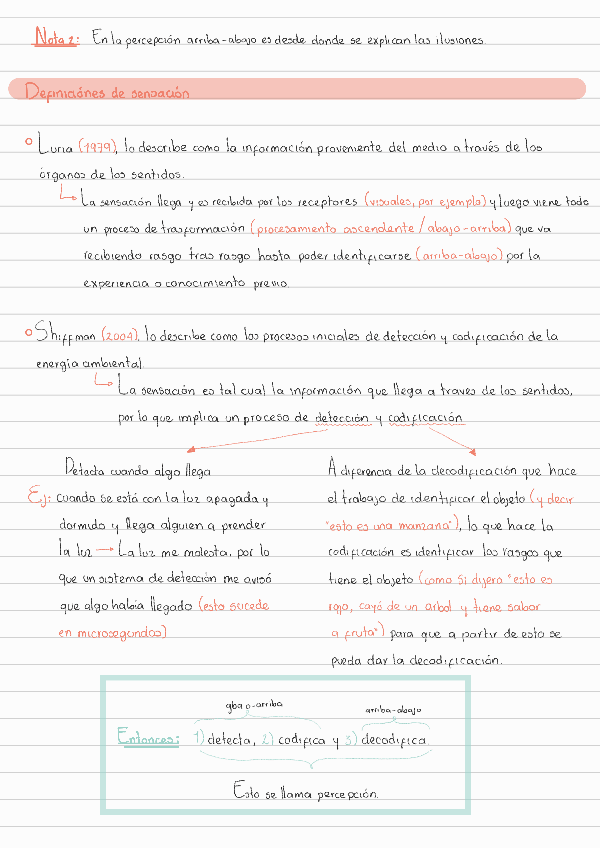 Nota 2: En la percepción arriba-abajo es desde donde se explican las ilusiones.
Definiciónes de sensación
Luria (1979), lo describe como la información proveniente del medio a través de los
órganos de los sentidos.
La sensación llega y es recibida por los receptores (visuales, por ejemplo) y luego viene todo
un proceso de trasformación (procesamiento ascendente / abajo-arriba) que va
recibiendo rasgo tras rasgo hasta poder identificarse (arriba-abajo) por la
experiencia o conocimiento previo.
Shiffman (2004), lo describe como los procesos iniciales de detección y codificación de la
energía ambiental.
La sensación es tal cual la información que llega a traves de los sentidos,
por lo que implica un proceso de detección y codificación
Detecta cuando algo llega
Ej: cuando se está con la luz apagada y
dormido y llega alguien a prender
la luz → La luz me molesta, por lo
que un sistema de detección me avisó
que algo había llegado (esto sucede
en microsegundos)
A diferencia de la decodificación que hace
el trabajo de identificar el objeto (y decir
"esto es una manzana"), lo que hace la
codificación es identificar los rasgos que
tiene el objeto (como si dijera "esto es
rojo, cayó de un arbol y tiene sabor
a fruta") para que a partir de esto se
pueda dar la decodificación.
abajo-arriba arriba-abajo
Entonces: 1) detecta, 2) codifica y 3) decodifica
Esto se llama percepción.